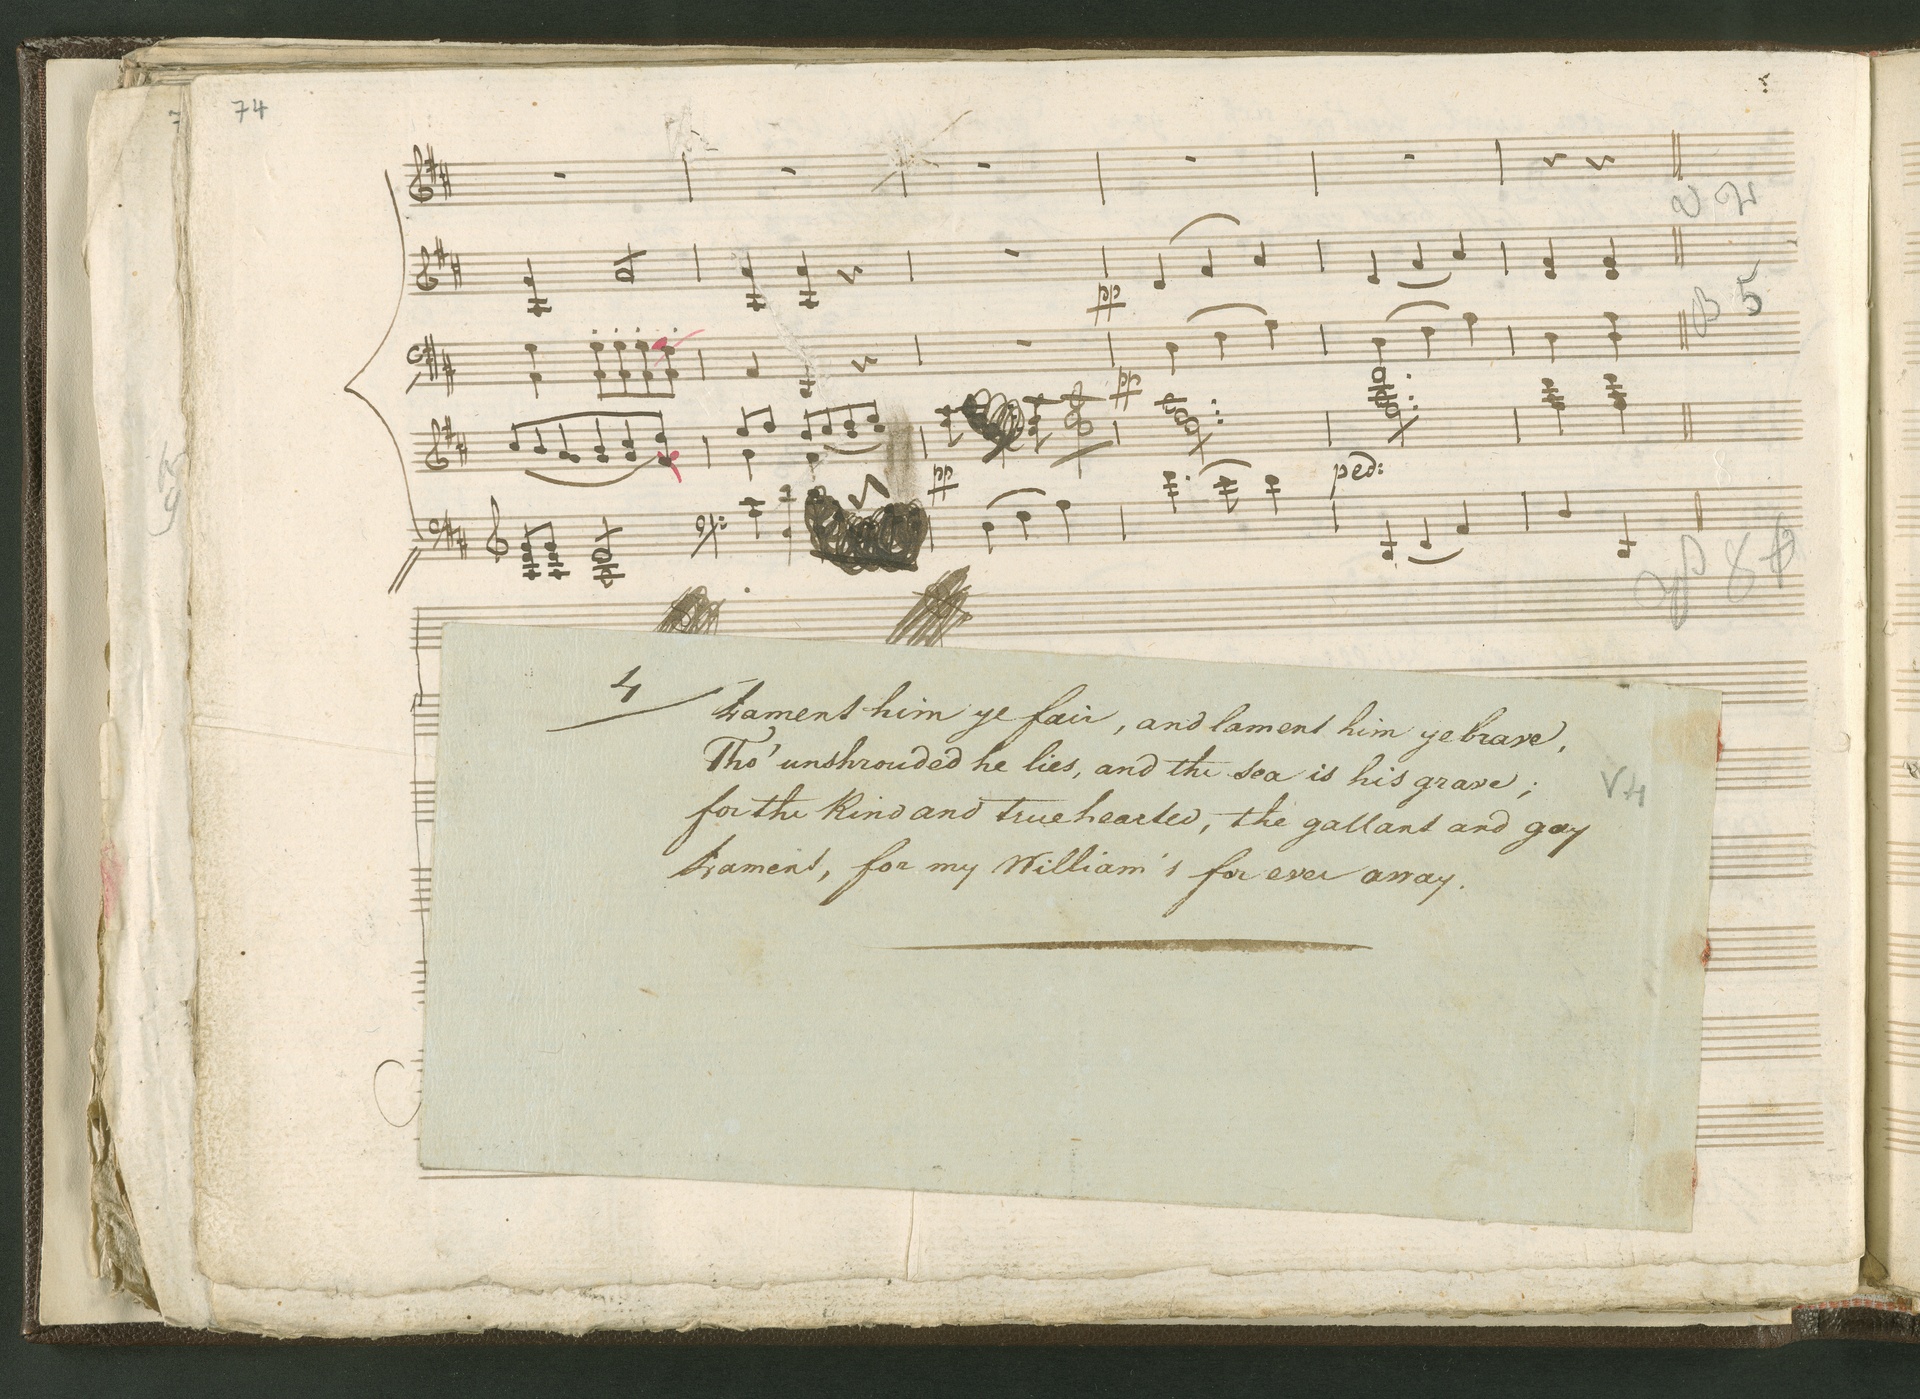 74
V 4
B 5
pp
pp
pp
ped:
4
Lament him ye fair, and lament him ye brave,
Tho' unshrouded he lies, and the sea is his grave;
for the kind and true hearted, the gallant and gay
Lament, for my William's for ever away.
V4